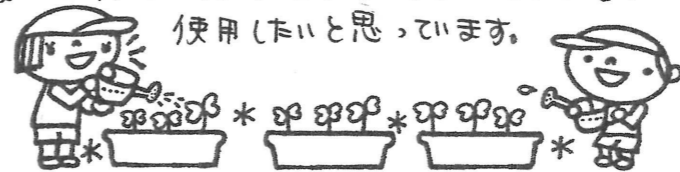 使用したいと思っています。